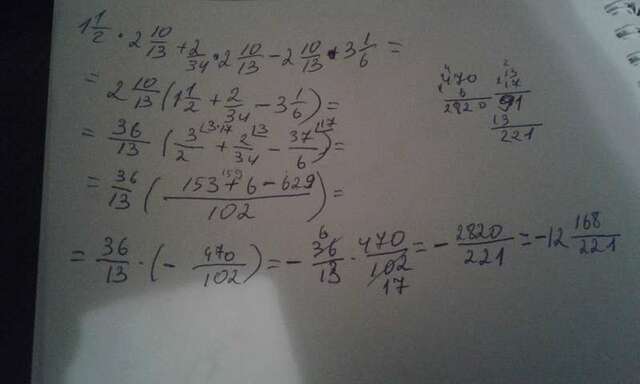 1 1/2 · 2 10/13 + 2/34 · 2 10/13 - 2 10/13 · 3 1/6 =
= 2 10/13 (1 1/2 + 2/34 - 3 1/6) =
= 36/13 (3/2 + 2/34 - 37/6) =
= 36/13 (153 + 6 - 629 / 102) =
159
= 36/13 · (- 470/102) = - 36/13 · 470/102 = - 2820/221 = -12 168/221
6
17
470
6
2820
13
17
91
13
221